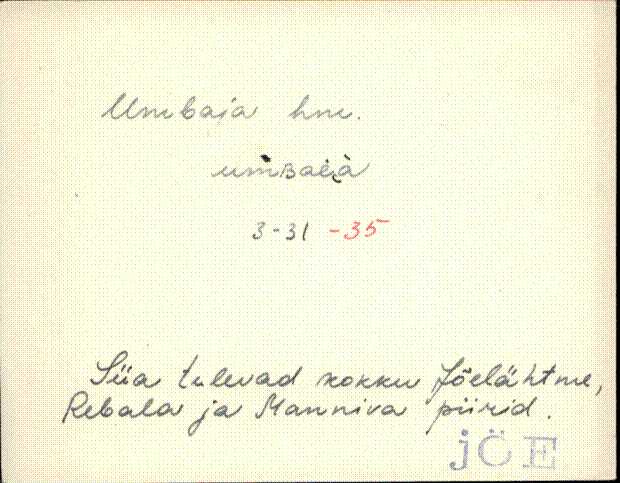 Umbaia hm.
umʙaià
3-31 -35
Siia tulevad kokku Jõelähtme,
Rebala ja Manniva piirid.
JÕE